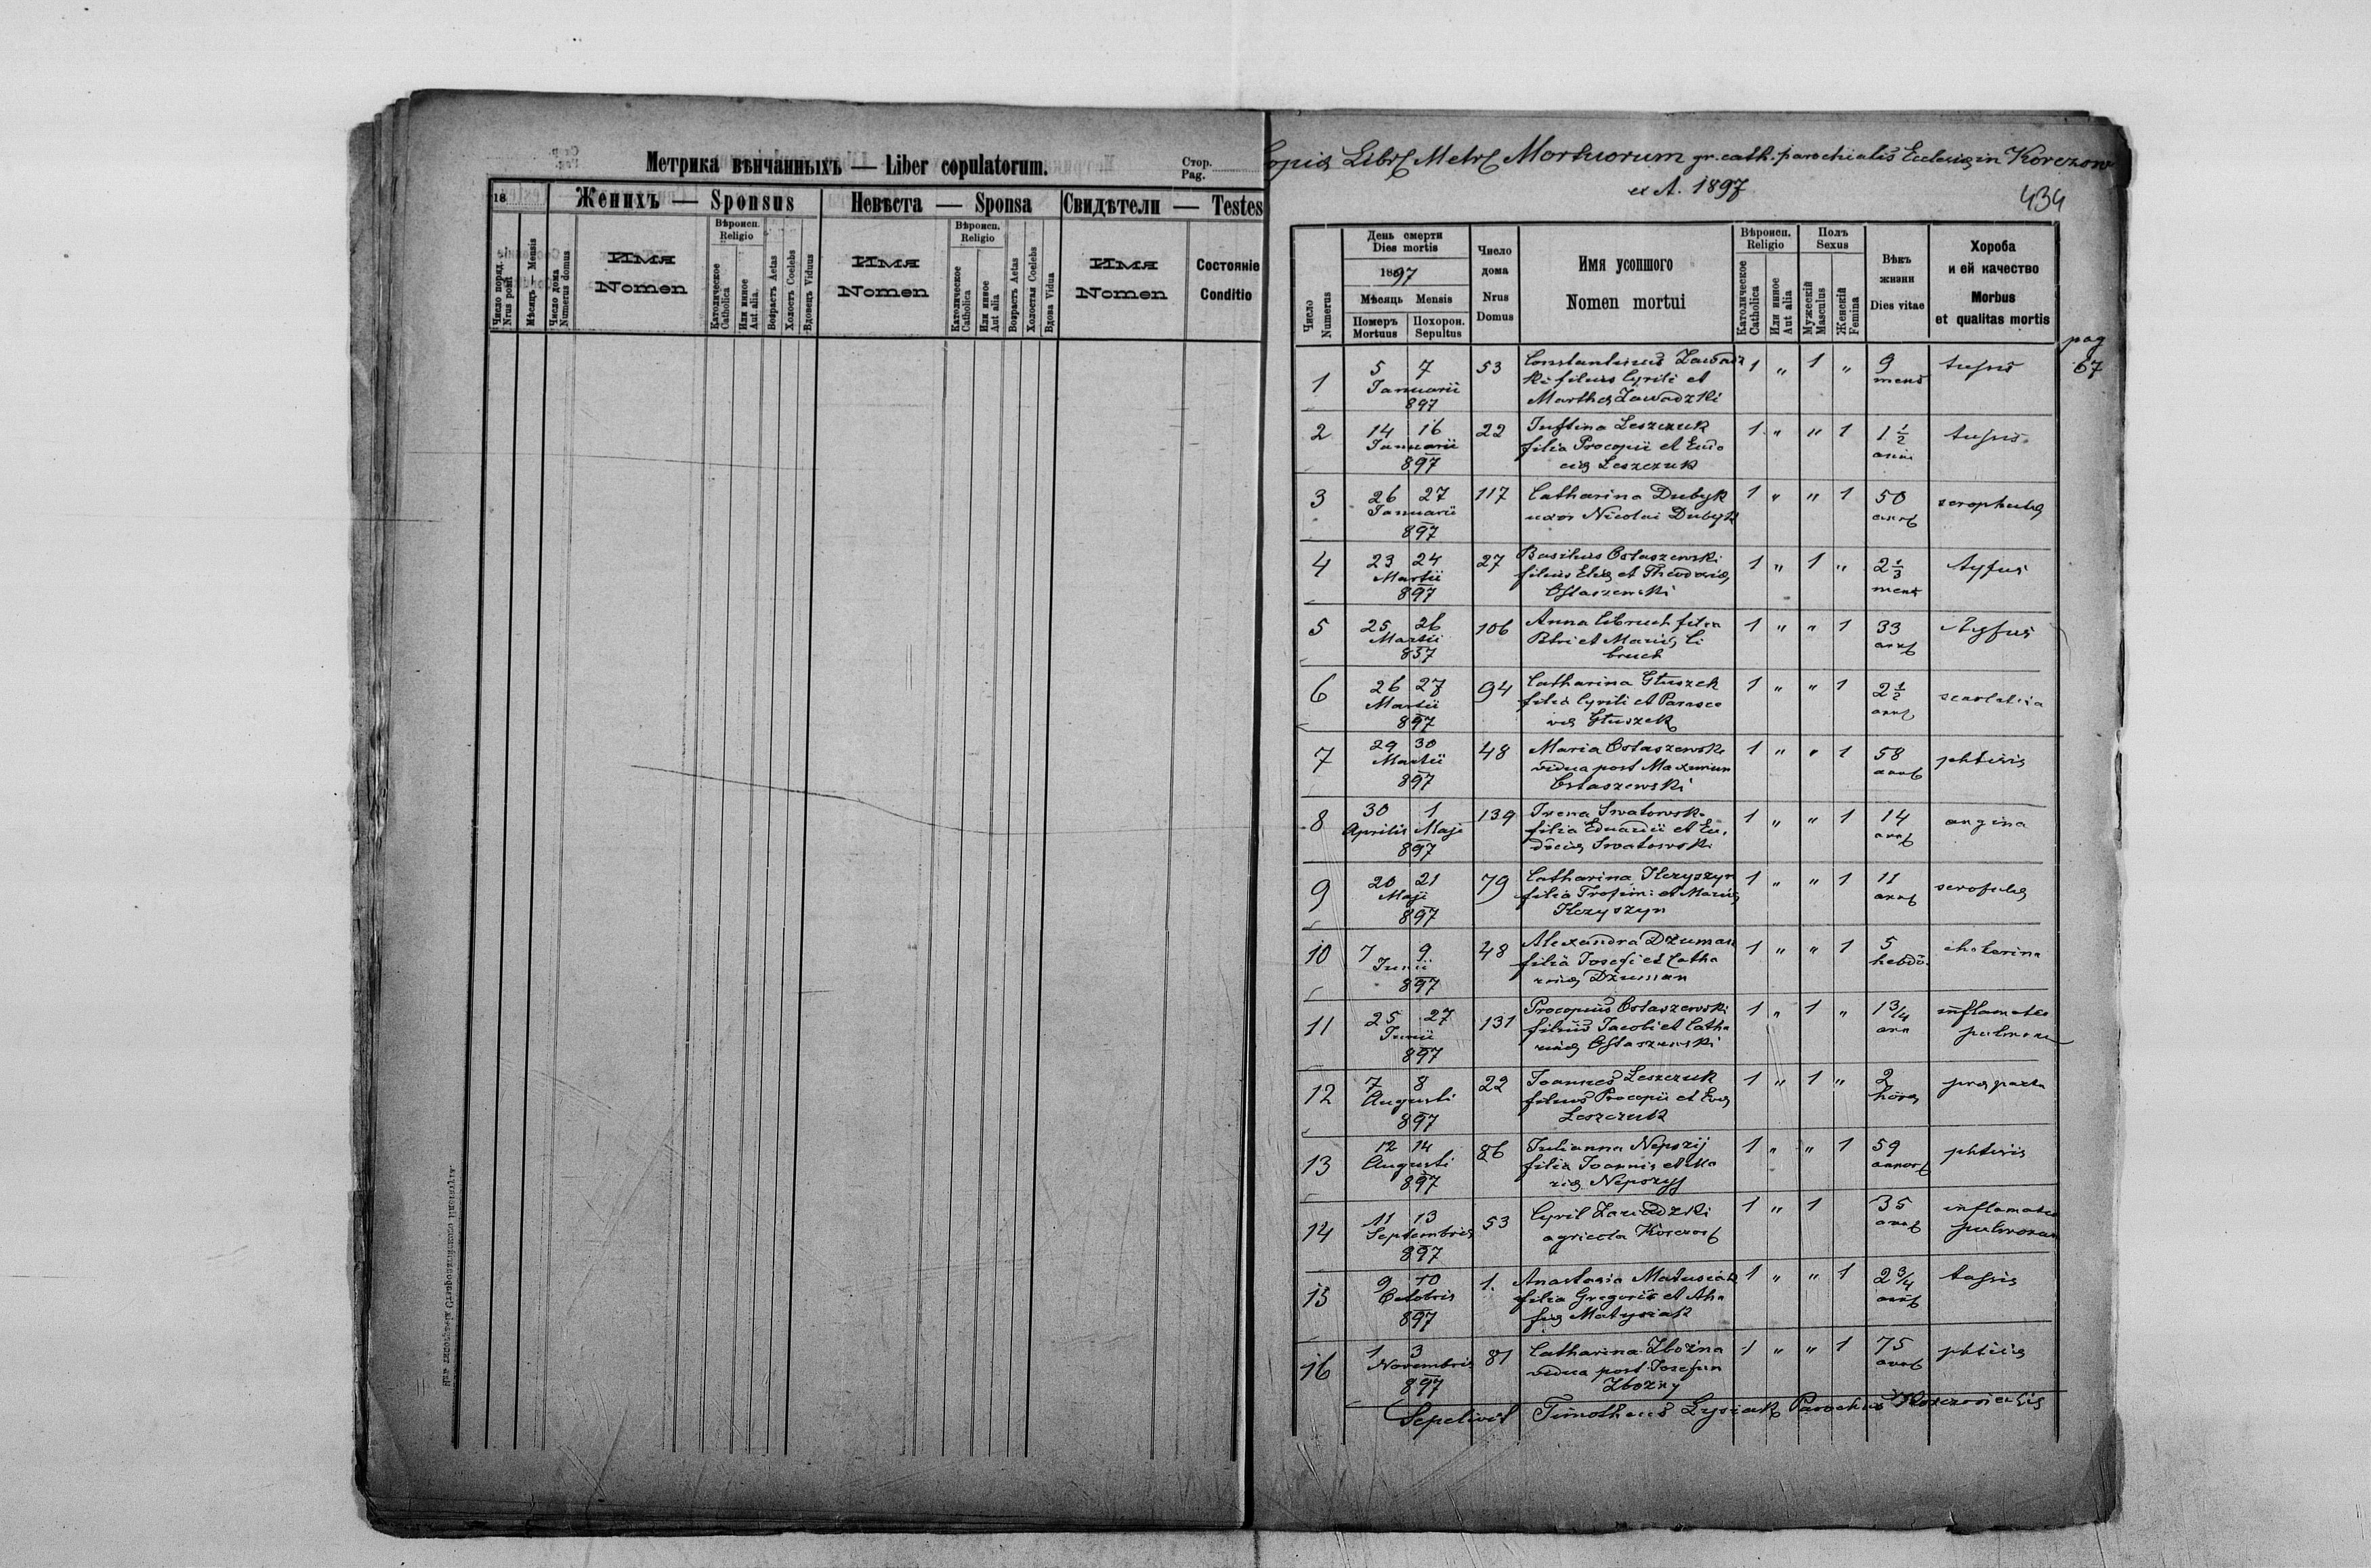 Метрика вѣнчанныхъ — Liber copulatorum.
Стор.
Pag.
18
Женихъ — Sponsus
Невѣста — Sponsa
Свидѣтели — Testes
Число поряд.
Nrus posit
Мѣсяць — Mensis
Число дома
Numerus domus
Имя
Nomen
Вѣроисп.
Religio
Католическое
Catholica
Или иное
Aut. alia.
Возрастъ Aetas
Холостъ Coelebs
Вдовецъ Viduus
Имя
Nomen
Вѣроисп.
Religio
Католическое
Catholica
Или иное
Aut alia
Возрастъ Aetas
Холостая Coelebs
Вдова Vidua
Имя
Nomen
Состоянiе
Conditio
Copia Libr Metr Mortuorum gr. cath. parochialis Ecclesiæ in Korczow
ex A. 1897
434
Число
Numerus
День смерти
Dies mortis
1897
Мѣсяць Mensis
Померъ
Mortuus
Похорон.
Sepultus
Число
дома
Nrus
Domus
Имя усопшого
Nomen mortui
Вѣроисп.
Religio
Католическое
Catholica
Или иное
Aut alia
Полъ
Sexus
Мужескiй
Masculus
Женскiй
Femina
Вѣкъ
жизни
Dies vitae
Хороба
и ей качество
Morbus
et qualitas mortis
pag
67
1 5 7 Januarii 897 53 Constantinus Zawadz
ki filius Cyrili et
Marthæ Zawadzki 1 " 1 " 9 mens tussis
2 14 16 Januarii 897 22 Justina Leszczuk
filia Procopii et Eudo
ciæ Leszczuk 1 " " 1 1 1/2 anni tussis
3 26 27 Januarii 897 117 Catharina Dubyk
uxor Nicolai Dubyk 1 " " 1 50 scrophulæ
4 23 24 Martii 897 27 Basilius Ostaszewski
filius Eliæ et Theodosiæ
Ostaszewski 1 " 1 " 2 1/3 mens tyfus
5 25 26 Martii 897 106 Anna Cibruch filia
Petri et Mariæ Ci
bruch 1 " " 1 33 tyfus
6 26 27 Martii 897 94 Catharina Głuszek
filia Cyrili et Parasce
væ Głuszek 1 " " 1 2 1/2 scarlatina
7 29 30 Martii 897 48 Maria Ostaszewsk
vidua post Maximum
Ostaszewski 1 " " 1 58 phtisis
8 30 Aprilis 1 Maji 897 139 Irena Swatowsk
filia Eduardi et Eu
dociæ Swatowski 1 " " 1 14 angina
9 20 21 Maji 897 79 Catharina Ilczyszyn
filia Trofimi et Mariæ
Ilczyszyn 1 " " 1 11 scrofulæ
10 7 9 Junii 897 48 Alexandra Dżuman
filia Josefi et Catha
rinæ Dżuman 1 " " 1 5 hebdo.
11 25 27 Junii 897 131 Procopius Ostaszewski
filius Jacobi et Catha
rinæ Ostaszewski 1 " 1 " 1 3/4 ann inflamatio
pulmonum
12 7 8 Augusti 897 22 Joannes Leszczuk
filius Procopii et Evæ
Leszczuk 1 " 1 " 2 horæ
13 12 14 Augusti 897 86 Julianna Nepszij
filia Joannis et Ma
riæ Nepszyj 1 " " 1 59 phtisis
14 11 13 Septembris 897 53 Cyril Zawadzki
agricola 1 " 1 35 inflamatio
pulmonum
15 9 10 Octobris 897 1. Anastasia Matusiak
filia Gregorii et Aha
fiæ Matysiak 1 " " 1 2 3/4 tussis
16 1 3 Novembris 897 81 Catharina Zbożna
vidua post Josefum
Zbożny 1 " " 1 75 phtisis
Sepelivit Timotheus Lysiak Parochus Korczoviensis